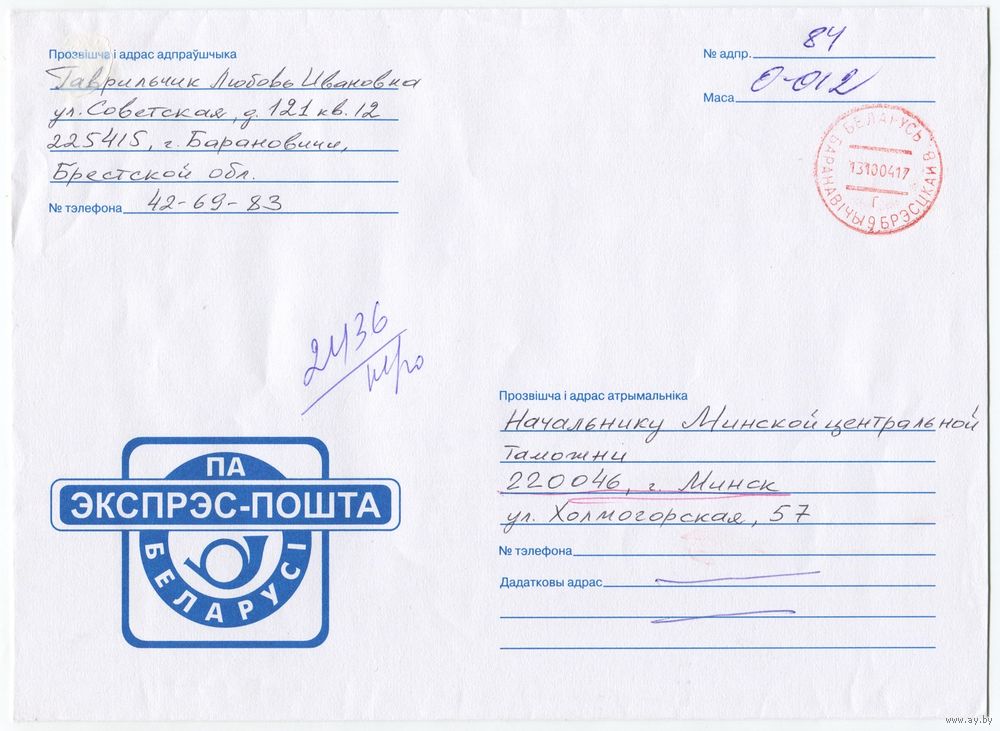 Прозвішча і адрас адпраўшчыка
Гаврильчик Любовь Ивановна
ул. Советская, д. 121 кв. 12
225415, г. Барановичи,
Брестской обл.
№ тэлефона 42-69-83
№ адпр. 84
Маса 0-012
БЕЛАРУСЬ
БАРАНАВІЧЫ 9 БРЭСЦКАЙ В.
13100417
Г
2436
Прозвішча і адрас атрымальніка
Начальнику Минской центральной
Таможни
220046, г. Минск
ул. Холмогорская, 57
№ тэлефона
Дадатковы адрас
ПА
ЭКСПРЭС-ПОШТА
БЕЛАРУСІ
www.ay.by